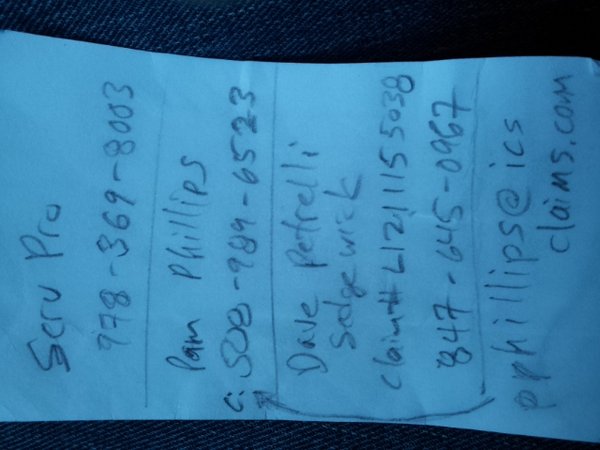 Serv Pro
978-369-8003
Pam Phillips
C: 508-989-6523
Dave Petrelli
Sedgewick
Claim# L12111555038
847-645-0967
pphillips@ics
claims.com